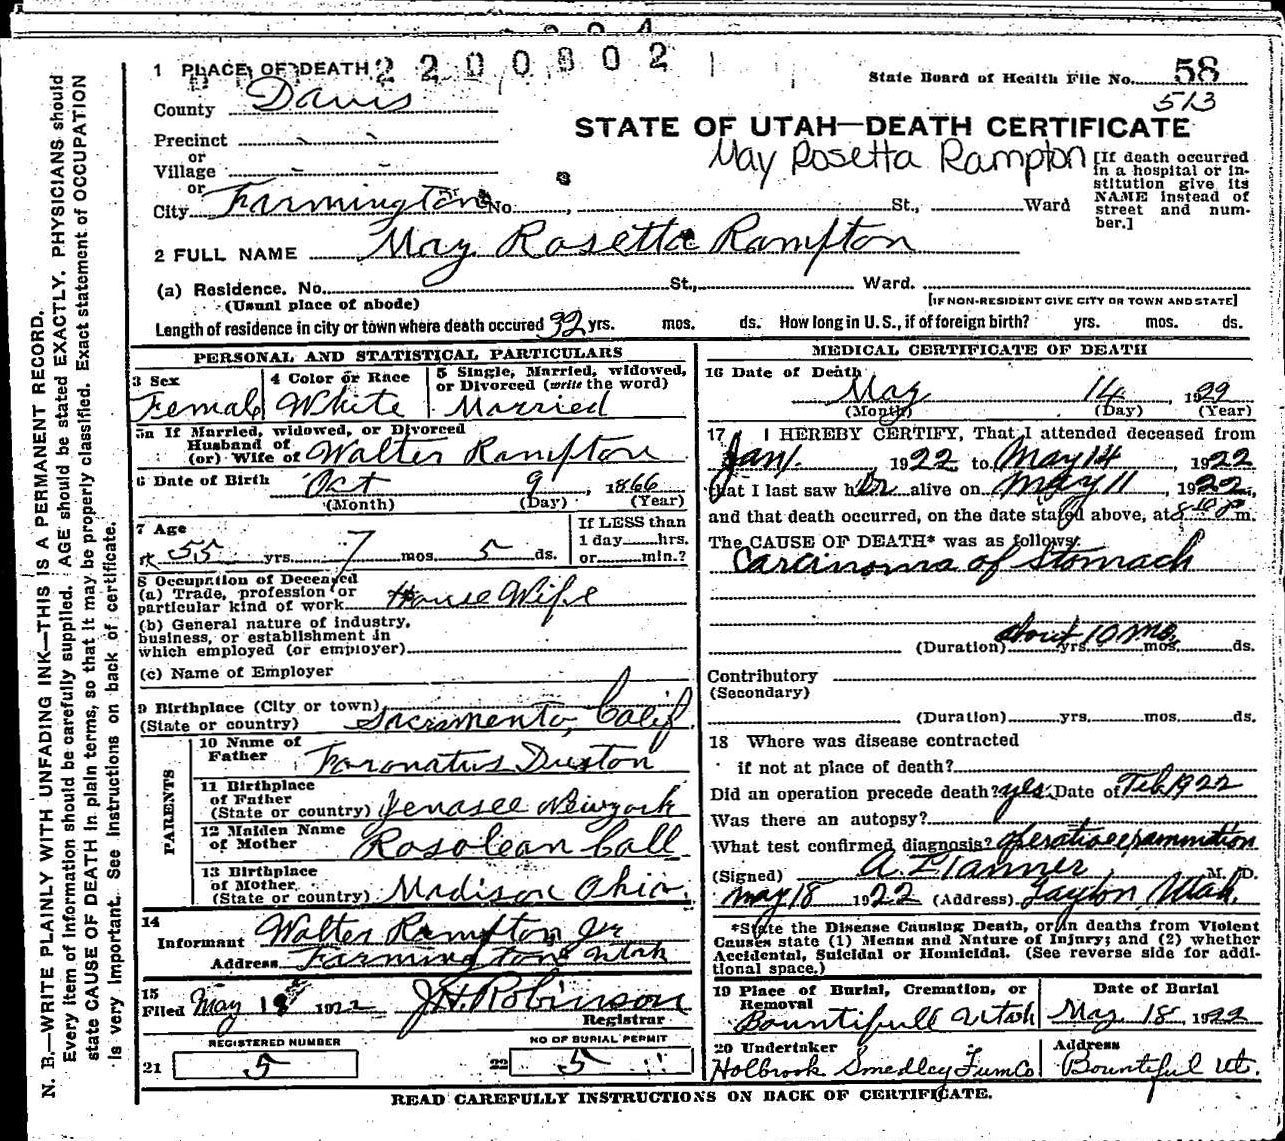 2200802
1 PLACE OF DEATH
State Board of Health File No. 58
513
County Davis
STATE OF UTAH—DEATH CERTIFICATE
Precinct
or
Village
May Rosetta Rampton
[If death occurred in a hospital or institution give its NAME instead of street and number.]
or
City Farmington No. , St., Ward
2 FULL NAME May Rosetta Rampton
(a) Residence. No. St., Ward.
(Usual place of abode)
[IF NON-RESIDENT GIVE CITY OR TOWN AND STATE]
Length of residence in city or town where death occured 32 yrs. mos. ds. How long in U.S., if of foreign birth? yrs. mos. ds.
PERSONAL AND STATISTICAL PARTICULARS
3 Sex Female
4 Color or Race White
5 Single, Married, widowed, or Divorced (write the word) Married
5a If Married, widowed, or Divorced
Husband of
(or) Wife of Walter Rampton
6 Date of Birth Oct 9, 1866
(Month) (Day) (Year)
7 Age 55 yrs. 7 mos. 5 ds.
If LESS than
1 day hrs.
or min.?
8 Occupation of Deceased
(a) Trade, profession or
particular kind of work House Wife
(b) General nature of industry,
business, or establishment in
which employed (or employer)
(c) Name of Employer
9 Birthplace (City or town)
(State or country) Sacramento, Calif.
PARENTS
10 Name of
Father Foronatus Duston
11 Birthplace
of Father
(State or country) Jenasee Newyork
12 Maiden Name
of Mother Rosolean Call
13 Birthplace
of Mother
(State or country) Madison Ohio.
14
Informant Walter Rampton Jr
Address Farmington Utah
15
Filed May 18 1922 J.H. Robinson
Registrar
REGISTERED NUMBER
21 5
NO OF BURIAL PERMIT
22 5
MEDICAL CERTIFICATE OF DEATH
16 Date of Death
May 14, 1922
(Month) (Day) (Year)
17 I HEREBY CERTIFY, That I attended deceased from
Jan 1. 1922 to May 14, 1922
that I last saw her alive on May 11, 1922,
and that death occurred, on the date stated above, at m.
The CAUSE OF DEATH* was as follows:
Carcinoma of Stomach
(Duration) about yrs. 10 mo. mos. ds.
Contributory
(Secondary)
(Duration) yrs. mos. ds.
18 Where was disease contracted
if not at place of death?
Did an operation precede death? yes. Date of Feb 1922
Was there an autopsy?
What test confirmed diagnosis? operative exammition
(Signed) A. L Tanner M. D.
May 18 1922 (Address) Layton, Utah.
*State the Disease Causing Death, or in deaths from Violent
Causes state (1) Means and Nature of Injury; and (2) whether
Accidental, Suicidal or Homicidal. (See reverse side for addi-
tional space.)
19 Place of Burial, Cremation, or
Removal
Bountifull Utah
Date of Burial
May 18 1922
20 Undertaker
Holbrook Smedley Furn Co
Address
Bountiful Ut.
READ CAREFULLY INSTRUCTIONS ON BACK OF CERTIFICATE.
N. B.—WRITE PLAINLY WITH UNFADING INK—THIS IS A PERMANENT RECORD.
Every item of information should be carefully supplied. AGE should be stated EXACTLY. PHYSICIANS should
state CAUSE OF DEATH in plain terms, so that it may be properly classified. Exact statement of OCCUPATION
is very important. See Instructions on back of certificate.